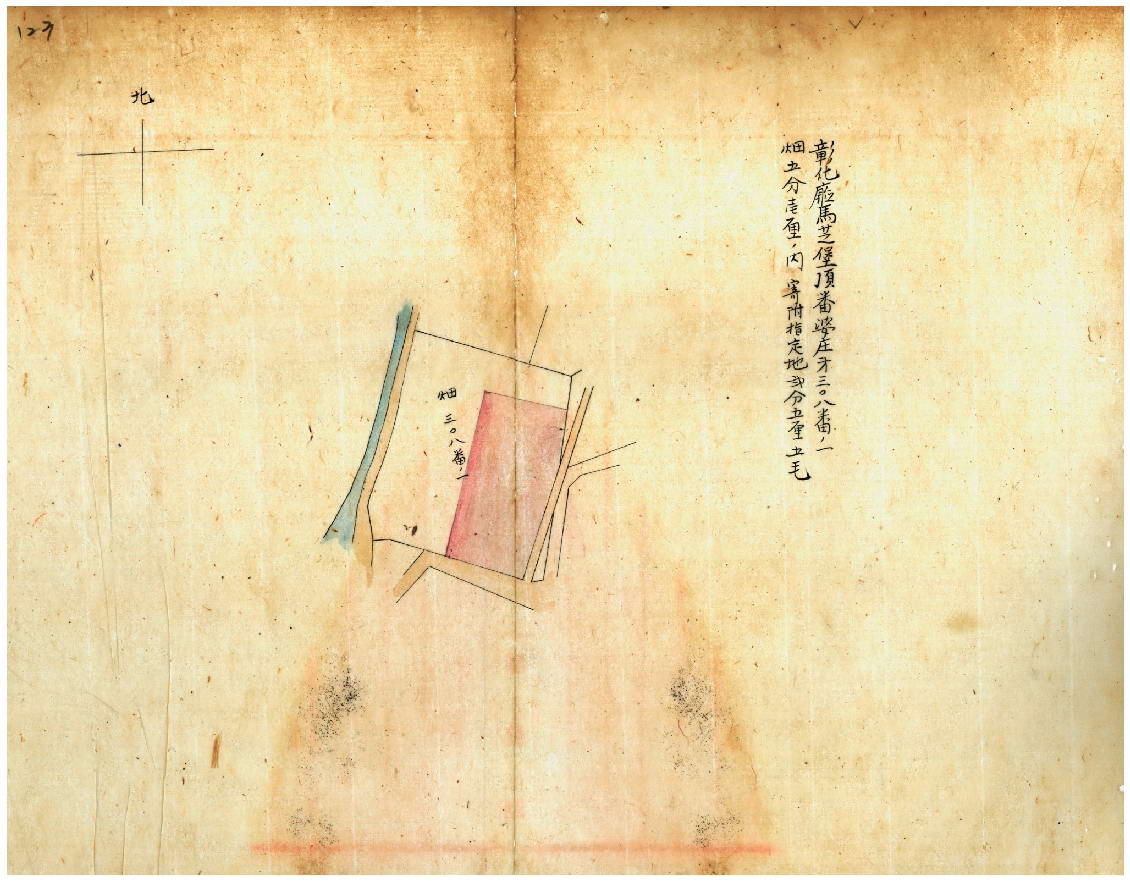 123
北
彰化廳馬芝堡頂番婆庄才三〇八番ノ一
畑五分壱厘ノ内 寄附指定地弐分五厘五毛
畑 三〇八番ノ一